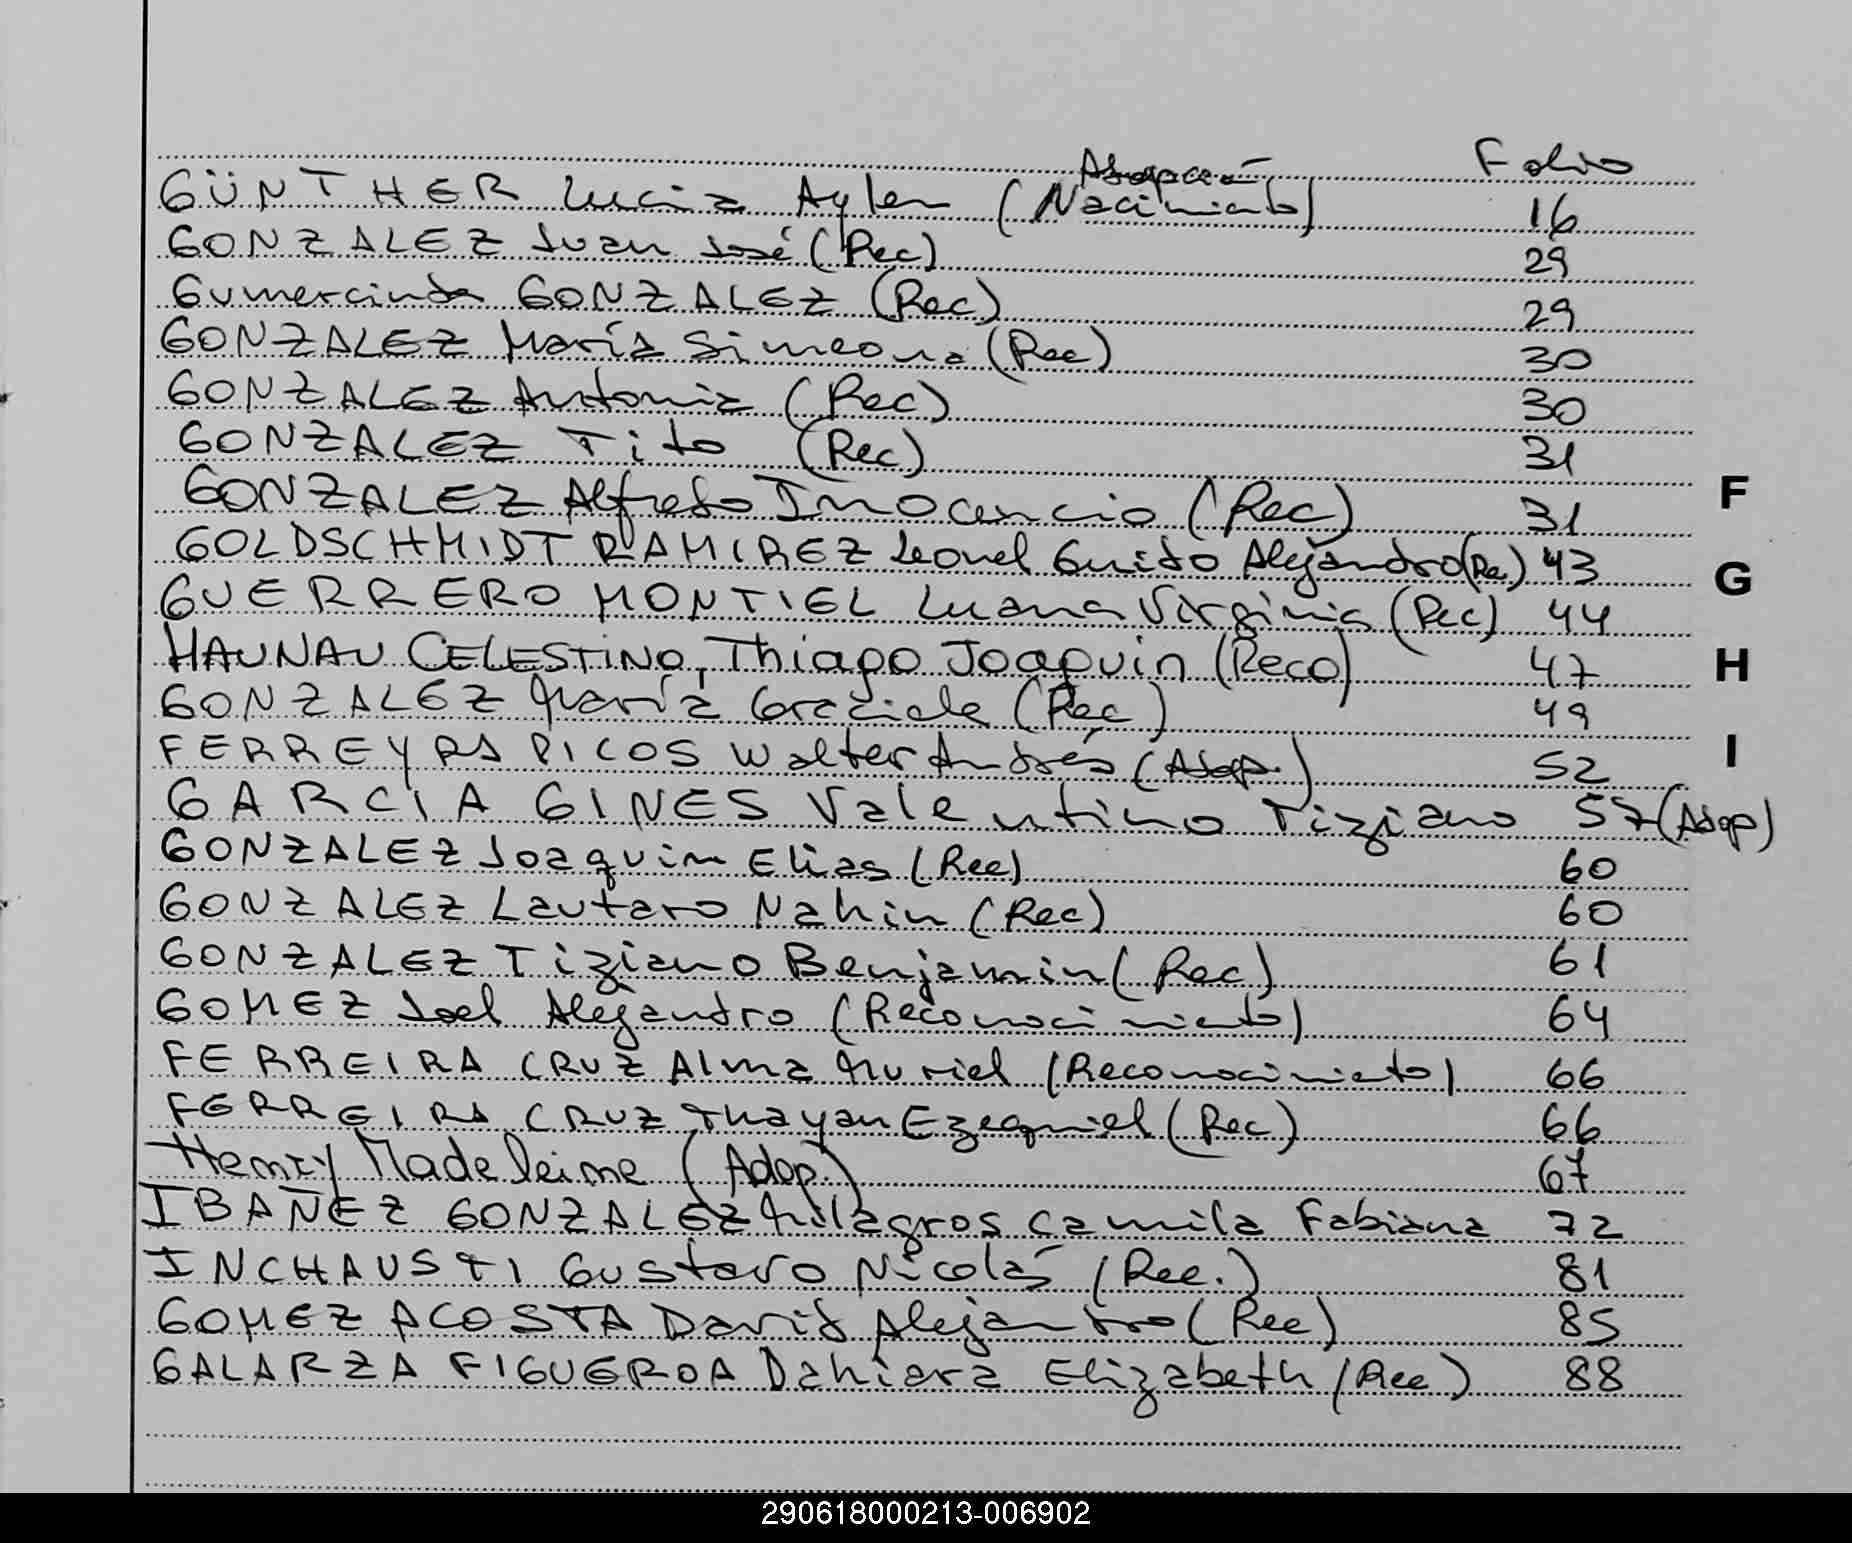 Folio
Adopción
GÜNTHER Lucia Aylen (Nacimiento) 16
GONZALEZ Juan José (Rec) 29
Gumercinda GONZALEZ (Rec) 29
GONZALEZ María Simeona (Rec) 30
GONZALEZ Antonia (Rec) 30
GONZALEZ Tito (Rec) 31
GONZALEZ Alfredo Inocencio (Rec) 31
F
GOLDSCHMIDT RAMIREZ Leonel Guido Alejandro (Rec) 43
G
GUERRERO MONTIEL Luana Virginia (Rec) 44
HAUNAU CELESTINO, Thiago Joaquin (Reco) 47
H
GONZALEZ María Graciela (Rec) 49
FERREYRA PICOS Walter Andrés (Adop.) 52
I
GARCIA GINES Valentino Tiziano 57 (Adop)
GONZALEZ Joaquim Elias (Rec) 60
GONZALEZ Lautaro Nahin (Rec) 60
GONZALEZ Tiziano Benjamin (Rec) 61
GOMEZ Joel Alejandro (Reconocimiento) 64
FERREIRA CRUZ Alma Muriel (Reconocimiento) 66
FERREIRA CRUZ Thayan Ezequiel (Rec) 66
Henry Madeleine (Adop.) 67
IBAÑEZ GONZALEZ Milagros Camila Fabiana 72
INCHAUSTI Gustavo Nicolás (Rec.) 81
GOMEZ ACOSTA David Alejandro (Rec) 85
GALARZA FIGUEROA Dahiara Elizabeth (Rec) 88
290618000213-006902